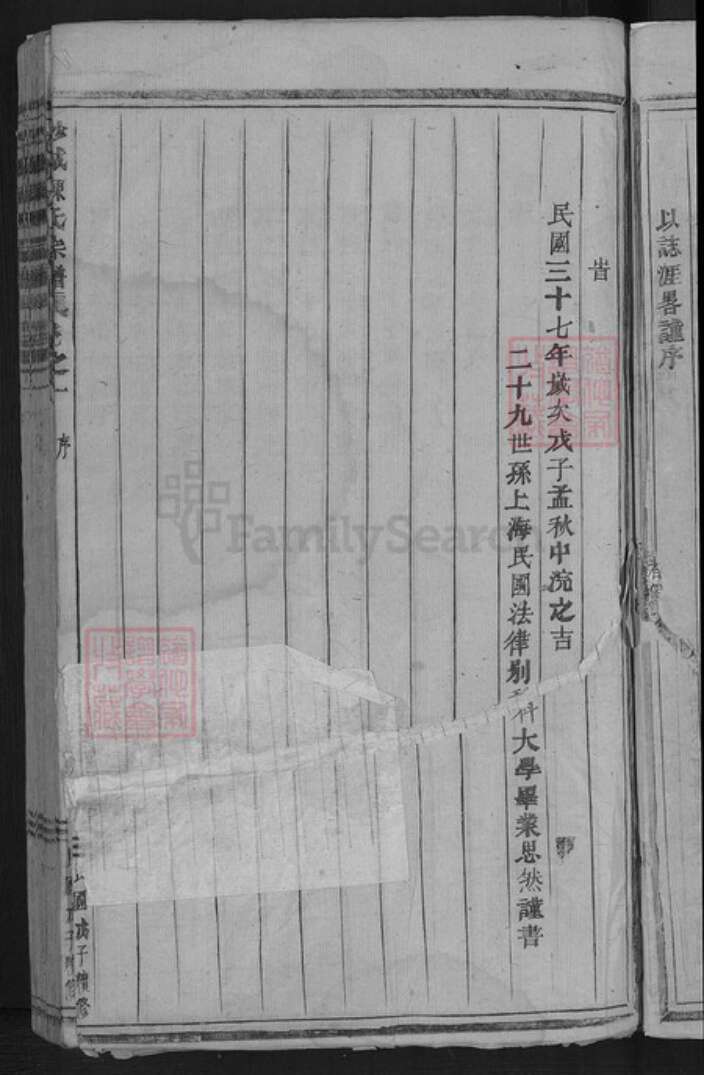 以誌涯畧謹序
旹
民國三十七年歲次戊子孟秋中浣之吉
二十九世孫上海民國法律別科大學畢業思然謹書
陳氏宗譜
卷之一
序
民國戊子續修
FamilySearch